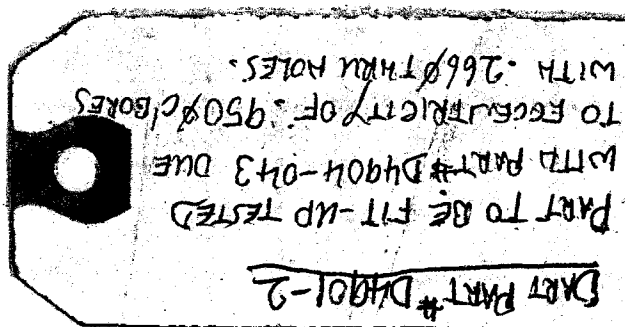 DART PART # D4901-2
PART TO BE FIT-UP TESTED
WITH PART # D4904-043 DUE
TO ECCENTRICITY OF .950Ø C'BORES
WITH .266Ø THRU HOLES.